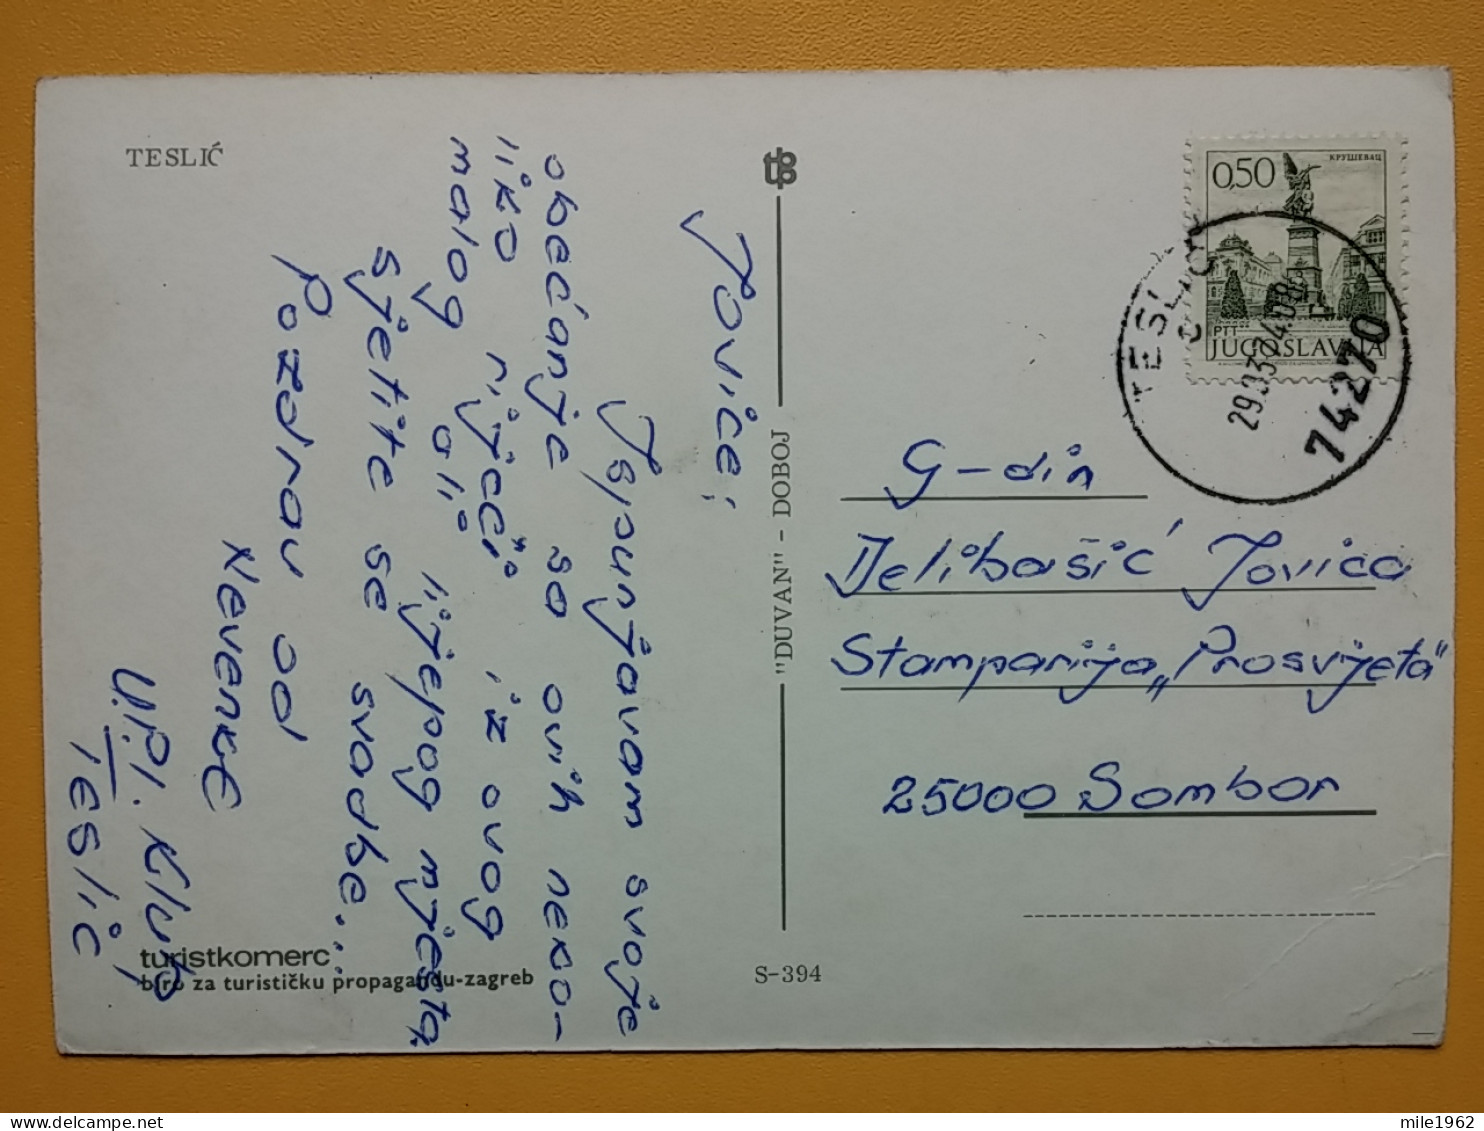 TESLIĆ
Jovice;
Ispunjavam svoje
obećanje sa ovih neko-
liko riječi iz ovog
malog ali lijepog mjesta.
Sjetite se svadbe...
Pozdrav od
Nevenke
V.P.I. Klub
Teslić
turistkomerc
biro za turističku propagandu-zagreb
"DUVAN" - DOBOJ
S-394
0,50
КРУШЕВАЦ
PTT
JUGOSLAVIJA
TESLIĆ
74270
G-din
Delibašić Jovica
Stamparija „Prosvjeta"
25000 Sombor
mile1962